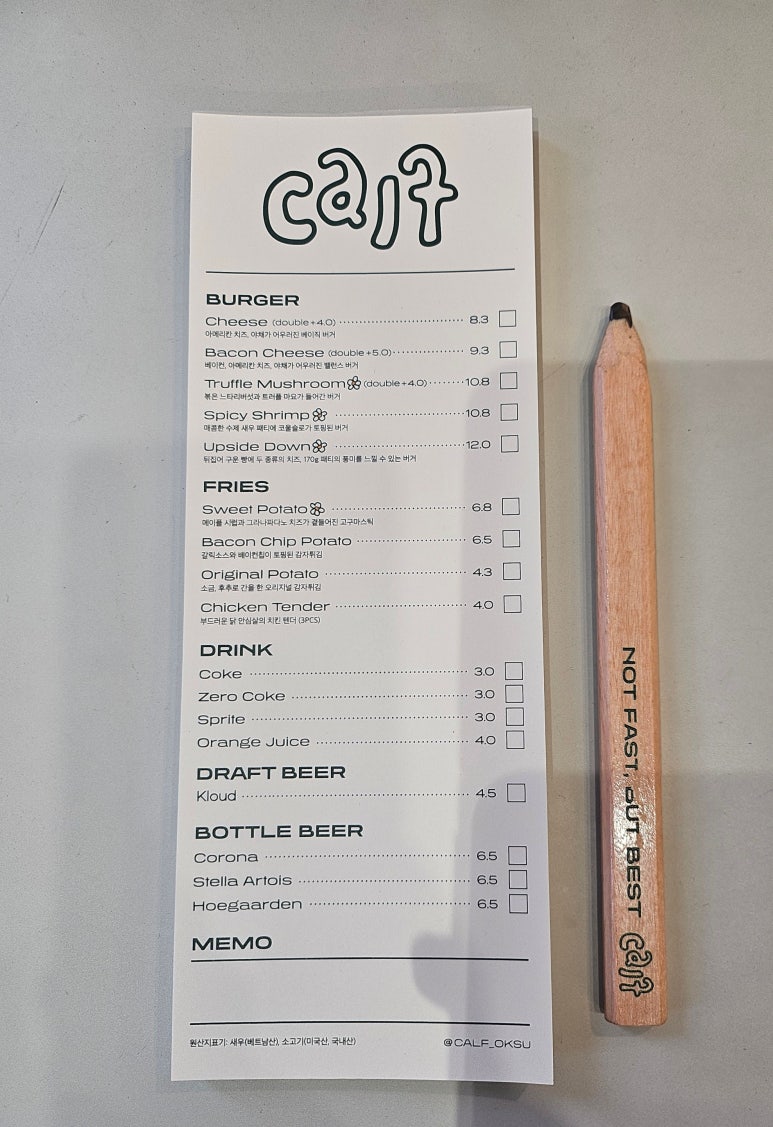 calf
BURGER
Cheese (double+4.0) 8.3
아메리칸 치즈, 야채가 어우러진 베이직 버거
Bacon Cheese (double+5.0) 9.3
베이컨, 아메리칸 치즈, 야채가 어우러진 밸런스 버거
Truffle Mushroom (double+4.0) 10.8
볶은 느타리버섯과 트러플 마요가 들어간 버거
Spicy Shrimp 10.8
매콤한 수제 새우 패티에 코울슬로가 토핑된 버거
Upside Down 12.0
뒤집어 구운 빵에 두 종류의 치즈, 170g 패티의 풍미를 느낄 수 있는 버거
FRIES
Sweet Potato 6.8
메이플 시럽과 그라나파다노 치즈가 곁들어진 고구마스틱
Bacon Chip Potato 6.5
갈릭소스와 베이컨칩이 토핑된 감자튀김
Original Potato 4.3
소금, 후추로 간을 한 오리지널 감자튀김
Chicken Tender 4.0
부드러운 닭 안심살의 치킨 텐더 (3PCS)
DRINK
Coke 3.0
Zero Coke 3.0
Sprite 3.0
Orange Juice 4.0
DRAFT BEER
Kloud 4.5
BOTTLE BEER
Corona 6.5
Stella Artois 6.5
Hoegaarden 6.5
MEMO
원산지표기: 새우(베트남산), 소고기(미국산, 국내산)
@CALF_OKSU
NOT FAST, BUT BEST calf